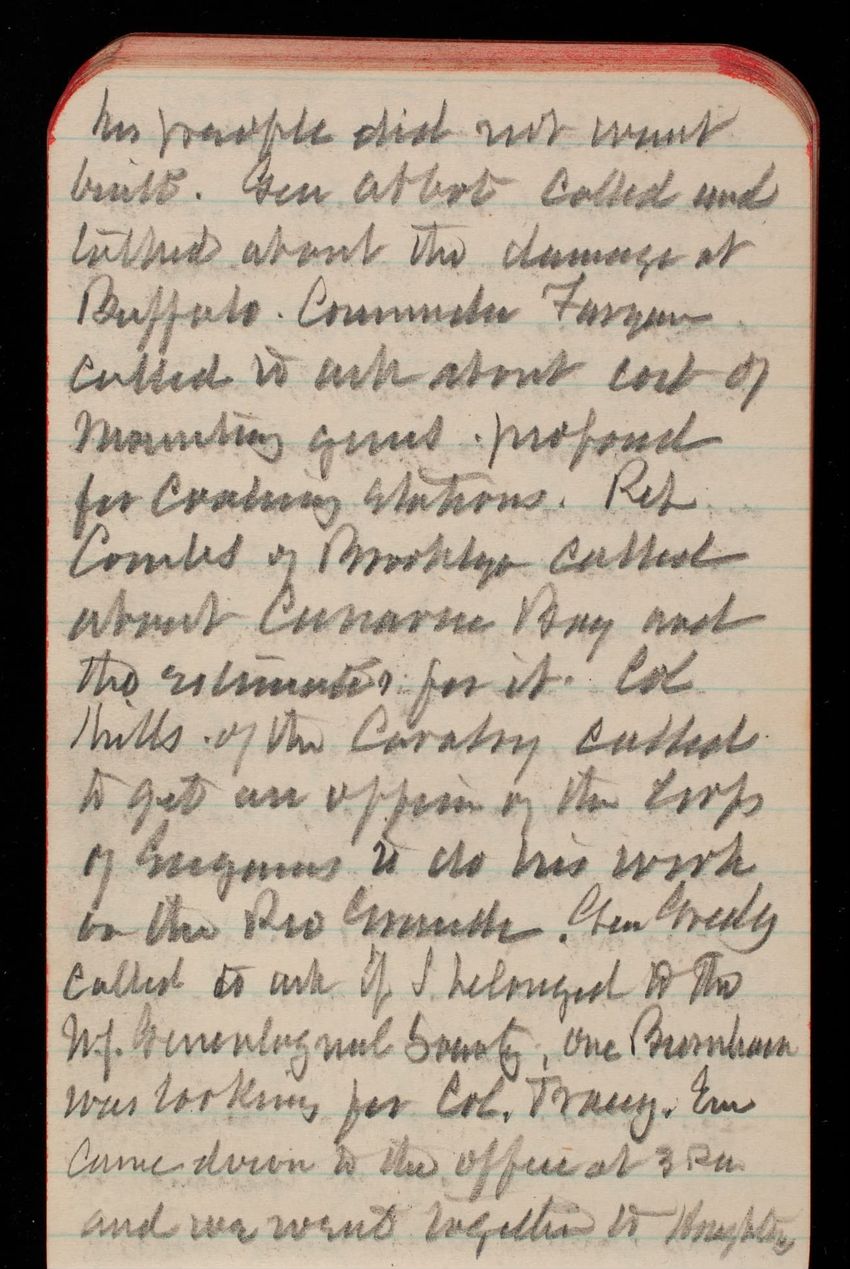 his people did not want
built. Gen Abbot called and
talked about the damage at
Buffalo. Commander
called to ask about cost of
mounting guns proposed
for Coaling stations. Rep
Coombs of Brooklyn called
about Canarsie Bay and
the estimates for it. Col
Mills of the Cavalry called
to get an officer of the Corps
of Engineers to do his work
on the Rio Grande. Gen Greely
called to ask if I belonged to the
Genealogical Society, one Burnham
was looking for Col. Tracy. Em
came down to the office at 3 PM
and we went together to